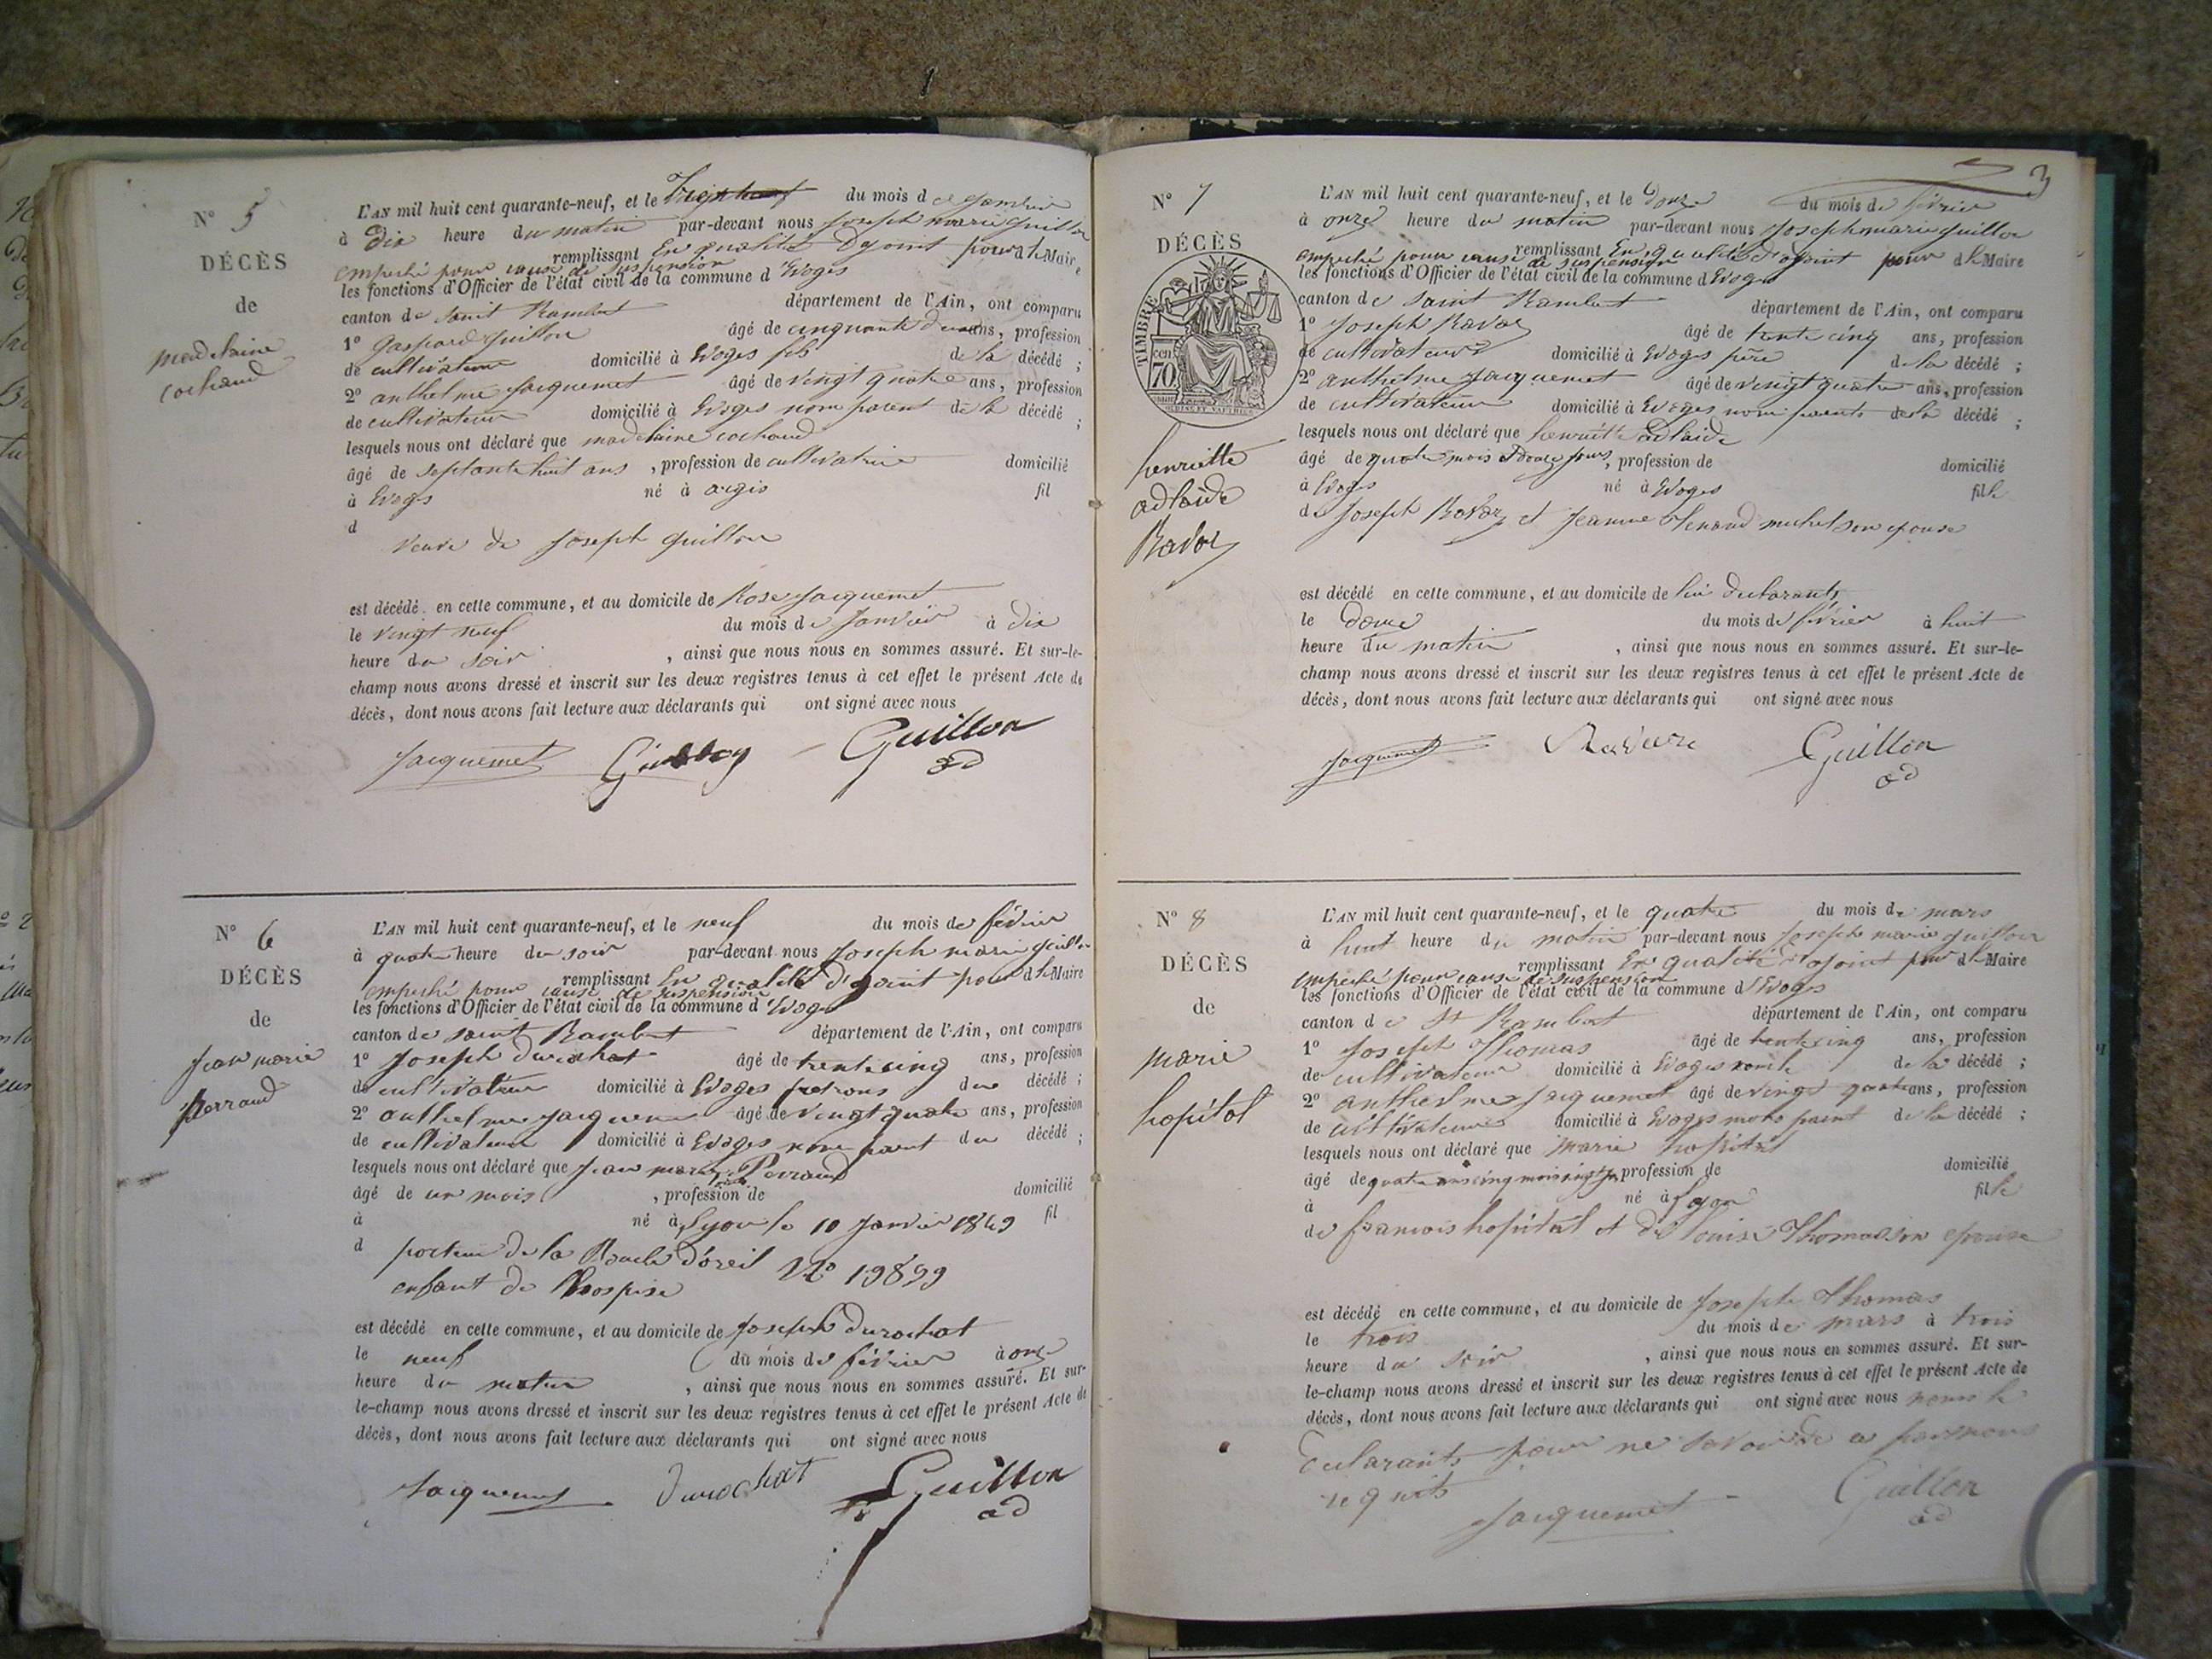 N° 5
DÉCÈS
de
madelaine
cochaud
L'AN mil huit cent quarante-neuf, et le du mois de janvier
à dix heure du matin par-devant nous joseph marie guillon
remplissant En qualité d'ajoint pour d le Maire
empeché pour cause de suspension
les fonctions d'Officier de l'état civil de la commune d Evoges
canton de saint Rambert département de l'Ain, ont comparu
1° gaspard guillon âgé de cinquante deux ans, profession
de cultivateur domicilié à Evoges fils de la décédé ;
2° anthelme jacquemet âgé de vingt quatre ans, profession
de cultivateur domicilié à Evoges nom parent de la décédé ;
lesquels nous ont déclaré que madelaine cochaud
âgé de septante huit ans , profession de cultivatrice domicilié
à Evoges né à argis fil
d
veuve de joseph guillon
est décédé en cette commune, et au domicile de Rose jacquemet
le vingt neuf du mois de janvier à dix
heure du soir , ainsi que nous nous en sommes assuré. Et sur-le-
champ nous avons dressé et inscrit sur les deux registres tenus à cet effet le présent Acte de
décès, dont nous avons fait lecture aux déclarants qui ont signé avec nous
jacquemet Guillon
ad
N° 6
DÉCÈS
de
jean marie
perraud
L'AN mil huit cent quarante-neuf, et le neuf du mois de févrie
à quatre heure du soir par-devant nous joseph marie guillon
remplissant En qualité d'ajoint pour d le Maire
empeché pour cause de suspension
les fonctions d'Officier de l'état civil de la commune d Evoges
canton de saint Rambert département de l'Ain, ont comparu
1° joseph durochat âgé de trente cinq ans, profession
de cultivateur domicilié à Evoges patrons du décédé ;
2° anthelme jacquemet âgé de vingt quatre ans, profession
de cultivateur domicilié à Evoges nom parent du décédé ;
lesquels nous ont déclaré que jean marie Perraud
âgé de un mois , profession de domicilié
à né à Lyon le 10 janvier 1849 fil
d porteur de la Boucle d'oreil N° 19899
enfant de l'hospise
est décédé en cette commune, et au domicile de joseph durochat
le neuf du mois de février à onze
heure du matin , ainsi que nous nous en sommes assuré. Et sur-
le-champ nous avons dressé et inscrit sur les deux registres tenus à cet effet le présent Acte de
décès, dont nous avons fait lecture aux déclarants qui ont signé avec nous
jacquemet durochat Guillon
ad
3
N° 7
DÉCÈS
TIMBRE
cen
70
henriette
adlaide
Ravoz
L'AN mil huit cent quarante-neuf, et le douze du mois de février
à onze heure du matin par-devant nous joseph marie guillon
remplissant En qualité d'ajoint pour d le Maire
empeché pour cause de suspension
les fonctions d'Officier de l'état civil de la commune d Evoges
canton de saint Rambert département de l'Ain, ont comparu
1° joseph Ravoz âgé de trente cinq ans, profession
de cultivateur domicilié à Evoges père de la décédé ;
2° anthelme jacquemet âgé de vingt quatre ans, profession
de cultivateur domicilié à Evoges nom parent de la décédé ;
lesquels nous ont déclaré que henriette adlaide
âgé de quatre mois et douze jours, profession de domicilié
à Evoges né à Evoges fille
de joseph Ravoz et jeanne michel son epouse
est décédé en cette commune, et au domicile de lui declarants
le douze du mois de février à huit
heure du matin , ainsi que nous nous en sommes assuré. Et sur-le-
champ nous avons dressé et inscrit sur les deux registres tenus à cet effet le présent Acte de
décès, dont nous avons fait lecture aux déclarants qui ont signé avec nous
jacquemet Guillon
ad
N° 8
DÉCÈS
de
marie
hopital
L'AN mil huit cent quarante-neuf, et le quatre du mois de mars
à huit heure du matin par-devant nous joseph marie guillon
remplissant En qualité d'ajoint pour d le Maire
empeché pour cause de suspension
les fonctions d'Officier de l'état civil de la commune d Evoges
canton de St Rambert département de l'Ain, ont comparu
1° joseph Thomas âgé de trente cinq ans, profession
de cultivateur domicilié à Evoges de la décédé ;
2° anthelme jacquemet âgé de vingt quatre ans, profession
de cultivateur domicilié à Evoges parent de la décédé ;
lesquels nous ont déclaré que marie hopital
âgé de quatre ans cinq mois profession de domicilié
à né à Lyon fille
de francois hopital et de louise Thomas son epouse
est décédé en cette commune, et au domicile de joseph Thomas
le trois du mois de mars à trois
heure du soir , ainsi que nous nous en sommes assuré. Et sur-
le-champ nous avons dressé et inscrit sur les deux registres tenus à cet effet le présent Acte de
décès, dont nous avons fait lecture aux déclarants qui ont signé avec nous
declarants pour ne savoir de ce par nous
requis
jacquemet Guillon
ad